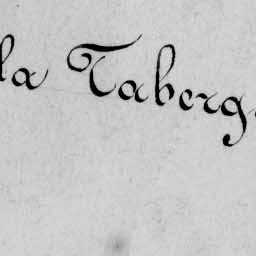 la Taberg